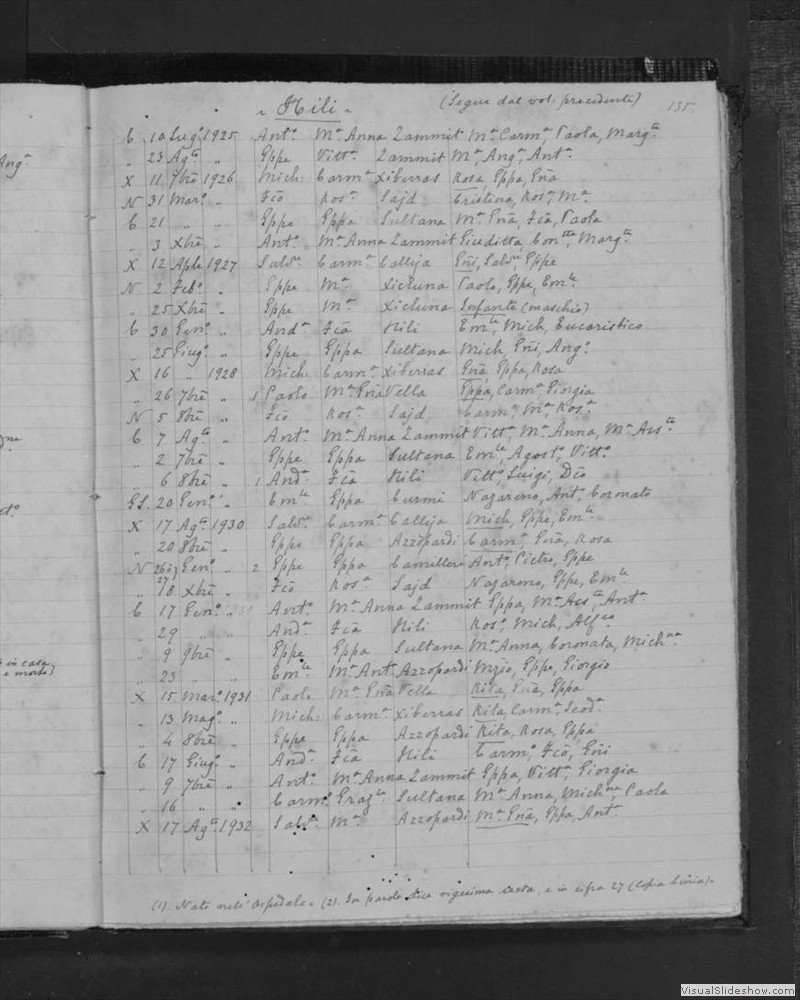 ~ Hili ~ (Segue dal vol: precedente) 135.
C 10 Lug.o 1925 Ant.o M.a Anna Zammit M.a Carm.a, Paola, Marg.ta
„ 23 Ag.to „ Gppe Vitt.a Zammit M.a Ang.a Ant.a
X 11 7bre 1926 Mich: Carm.a Xiberras Rosa, Gppa, Gña
N 31 Mar.o „ Fcõ Ros.a Sajd Cristina, Ros.a, M.a
C 21 „ „ Gppe Gppa Sultana M.a Gña, Fcã, Paola
„ 3 Xbre „ Ant.o M.a Anna Zammit Giuditta, Con.tta, Marg.ta
X 12 Aple 1927 Salv.e Carm.a Callija Gñi, Salv.e, Gppe
N 2 Feb.o „ Gppe M.a Xicluna Paolo, Gppe, Em.le
„ 25 Xbre „ Gppe M.a Xicluna Infante (maschio)
C 30 Gen.o „ And.a Fcã Hili Em.le, Mich, Eucaristico
„ 25 Giug.o „ Gppe Gppa Sultana Mich, Gñi, Ang.o
X 16 „ 1928 Mich: Carm.a Xiberras Gña, Gppa, Rosa
„ 26 7bre „ 1 Paolo M.a Gña Vella Gppa, Carm.a, Giorgia
N 5 8bre „ Fcõ Ros.a Sajd Carm.a, M.a Ros.a
C 7 Ag.to „ Ant.o M.a Anna Zammit Vitt.a, M.a Anna, M.a Ass.ta
„ 2 7bre „ Gppe Gppa Sultana Em.le, Agost.o, Vitt.o
„ 6 8bre „ 1 And.a Fcã Hili Vitt.o, Luigi, Dco
GS. 20 Gen.o „ Em.le Gppa Curmi Nazareno, Ant.o, Coronato
X 17 Ag.to 1930 Salv.e Carm.a Callija Mich, Gppe, Em.le
„ 20 8bre „ Gppe Gppa Azzopardi Carm.a, Gña, Rosa
N 26 o 27 Gen.o „ 2 Gppe Gppa Camilleri Ant.o, Pietro, Gppe
„ 18 Xbre „ Fcõ Ros.a Sajd Nazareno, Gppe, Em.le
C 17 Gen.o Ant.o M.a Anna Zammit Gppa, M.a Ass.ta, Ant.a
„ 29 „ „ And.a Fcã Hili Ros.o, Mich, Alf.so
„ 9 9bre „ Gppe Gppa Sultana M.a Anna, Coronata, Mich.na
„ 23 „ „ Em.le M.a Ant.a Azzopardi Mzio, Gppe, Giorgio
X 15 Mar.o 1931 Paolo M.a Gña Vella Rita, Gña, Gppa
„ 13 Mag.o „ Mich: Carm.a Xiberras Rita, Carm.a, Teod.a
„ 4 8bre „ Gppe Gppa Azzopardi Rita, Rosa, Gppa
C 17 Giug.o „ And.a Fcã Hili Carm.o, Fcõ, Gñi
„ 9 7bre „ Ant.o M.a Anna Zammit Gppa, Vitt.a, Giorgia
„ 16 „ „ Carm.o Graz.la Sultana M.a Anna, Mich.na, Paola
X 17 Ag.to 1932 Salv.e M.a Azzopardi M.a Gña, Gppa, Ant.a
(1). Nato nell' Ospedale. (2). In parole dice vigesima sexta, e in cifra 27 (Copia Curia).
VisualSlideshow.com